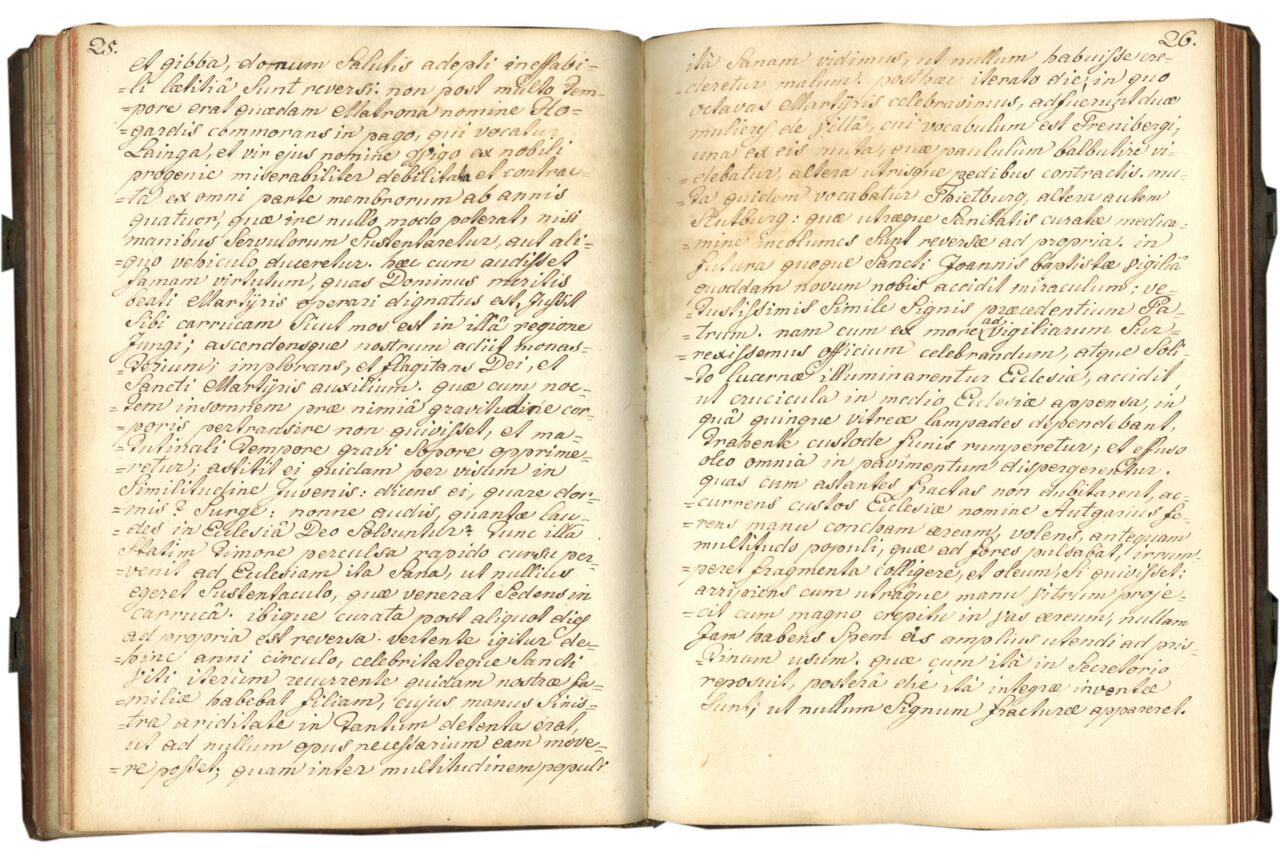 25.
et gibba, donum Salutis adepti ineffabi-
=li lætitiâ Sunt reversi: non post multo tem-
=pore erat quædam Matrona nomine Ho-
=gardis commorans in pago, qui vocatur
Lainga, et vir ejus nomine Osigo ex nobili
progenie miserabiliter debilitata et contrac-
=ta ex omni parte membrorum ab annis
quatuor; quæ ire nullo modo poterat, nisi
manibus Servulorum Sustentaretur, aut ali-
=quo vehiculo duceretur. hæc cum audisset
famam virtutum, quas Dominus meritis
beati Martyris operari dignatus est, Jussit
Sibi carrucam Sicut mos est in illâ regione
Jungi; ascendensque nostrum adiit monas-
=terium; implorans, et flagitans Dei, et
Sancti Martyris auxilium. quæ cum noc-
=tem insomnem præ nimiâ gravitudine cor-
=poris pertransire non quivisset, et ma-
=tutinali tempore gravi Sopore opprime-
=retur; astitit ei quidam per visum in
Similitudine Juvenis: dicens ei, quare dor-
=mis? Surge: nonne audis, quantæ lau-
=des in Ecclesiâ Deo Solvuntur? tunc illa
Statim timore perculsa rapido cursu per-
=venit ad Ecclesiam ita Sana, ut nullius
egeret Sustentaculo, quæ venerat Sedens in
Carrucâ. ibique curata post aliquot dies
ad propria est reversa. vertente igitur de-
=hinc anni circulo, celebritateque Sancti
Viti iterum recurrente quidam nostræ fa-
=miliæ habebat filiam, cujus manus Sinis-
=tra ariditate in tantum detenta erat,
ut ad nullum opus necessarium eam move-
=re posset; quam inter multitudinem populi
26.
ità Sanam vidimus, ut nullum habuisse cre-
=deretur malum. posthæc iterato die, in quo
octavas Martyris celebravimus, adfuerunt duæ
mulieres de villâ, cui vocabulum est Frenibergi,
una ex eis muta, quæ paululùm balbutire vi-
=debatur, altera utrisque pedibus contractis. mu-
=ta quidem vocabatur Thietburg, altera autem
Stutburg: quæ utræque Sanitatis curatæ medica-
=mine incolumes Sunt reversæ ad propria. in
futura quoque Sancti Joannis baptistæ vigiliâ
quoddam novum nobis accidit miraculum; ve-
=tustissimis Simile Signis præcedentium Pa-
=trum. nam cum ex more ad vigiliarum Sur-
=rexissemus officium celebrandum, atque Soli-
=to lucernæ illuminarentur Ecclesiæ, accidit,
ut crucicula in medio Ecclesiæ appensa, in
quâ quinque vitreæ lampades dependebant,
trahente custode funis rumperetur; et effuso
oleo omnia in pavimentum dispergerentur.
quas cum astantes fractas non dubitarent, ac-
=currens custos Ecclesiæ nomine Autgarius fe-
=rens manu concham æream, volens, antequam
multitudo populi, quæ ad fores pulsabat, irrum-
=peret fragmenta colligere, et oleum, Si quivisset;
arripiens cum utraque manu vitrum proje-
=cit cum magno crepitu in vas æreum, nullam
Jam habens Spem eis amplius utendi ad pris-
=tinum usum. quæ cum ità in Secretario
reposuit, posterâ die ità integræ inventæ
Sunt; ut nullum Signum fracturæ appareret.